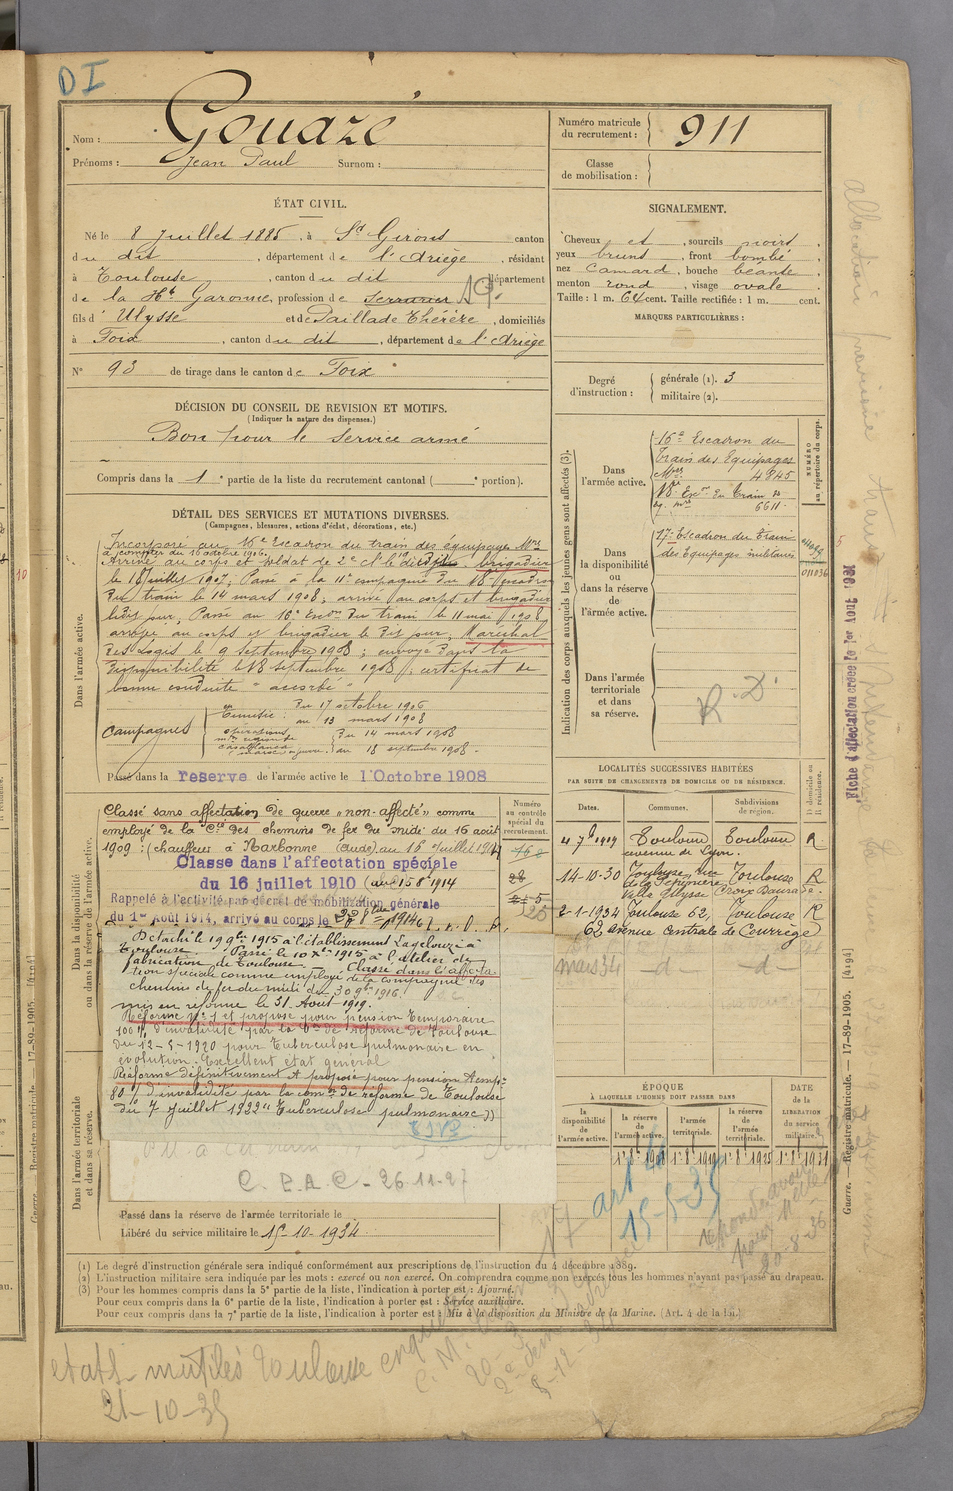 DI
Nom : Gouazé
Prénoms : Jean Paul Surnom :
Numéro matricule du recrutement : 911
Classe de mobilisation :
ÉTAT CIVIL.
Né le 8 Juillet 1885, à St Girons canton
du dit, département de l'Ariège, résidant
à Toulouse, canton du dit département
de la Hte Garonne, profession de Serrurier
fils d'Ulysse et de Paillade Thérèze, domiciliés
à Foix, canton du dit, département de l'Ariège
N° 93 de tirage dans le canton de Foix
SIGNALEMENT.
Cheveux et, sourcils noirs,
yeux bruns, front bombé,
nez camard, bouche béante,
menton rond, visage ovale.
Taille : 1 m. 64 cent. Taille rectifiée : 1 m. cent.
MARQUES PARTICULIÈRES :
DÉCISION DU CONSEIL DE REVISION ET MOTIFS.
(Indiquer la nature des dispenses.)
Bon pour le service armé
Compris dans la 1e partie de la liste du recrutement cantonal ( e portion).
Degré d'instruction : générale (1). 3
militaire (2).
DÉTAIL DES SERVICES ET MUTATIONS DIVERSES.
(Campagnes, blessures, actions d'éclat, décorations, etc.)
Dans l'armée active.
Incorporé au 16e Escadron du train des équipages Mres
à compter du 10 octobre 1906.
Arrivé au corps et soldat de 2e cl le dit jour. brigadier
le 18 juillet 1907; Passé à la 11e compagnie du 18e escadron
du train le 14 mars 1908; arrivé au corps et brigadier
ledit jour, Passé au 16e Escon du train le 11 mai 1908
arrivé au corps et brigadier le dit jour, Maréchal
des Logis le 9 septembre 1908; envoyé dans la
disponibilité le 18 septembre 1908, certificat de
bonne conduite "accordé"
Campagnes
en Tunisie : du 17 octobre 1906
au 13 mars 1908
opérations
Casablanca
du 14 mars 1908
au 18 septembre 1908.
Passé dans la réserve de l'armée active le 1 Octobre 1908
Indication des corps auxquels les jeunes gens sont affectés (3).
Dans l'armée active.
16e Escadron du
Train des Equipages
Mres 4845
18e Escon du train des
eq. mres 6611
NUMÉRO au répertoire du corps.
Dans la disponibilité ou dans la réserve de l'armée active.
17e Escadron du Train
des Equipages militaires
011036
Dans l'armée territoriale et dans sa réserve.
R. D.
Dans la disponibilité ou dans la réserve de l'armée active.
Classé sans affectation de guerre "non-affecté" comme
employé de la Cie des chemins de fer du midi du 16 août
1909 : (chauffeur à Narbonne (Aude) au 16 Juillet
Classe dans l'affectation spéciale
du 16 juillet 1910 (au 15 8 1914
Rappelé à l'activité par décret de mobilisation générale
du 1er Août 1914, arrivé au corps le
Détaché le 19 9bre 1915 à l'établissement Layelouze à
Toulouse. Passé le 10 Xbre 1915 à l'Atelier de
fabrication de Toulouse. Classé dans l'affecta-
tion spéciale comme employé de la compagnie des
chemins de fer du midi du 30 9bre 1916.
mis en réforme le 31 Août 1919.
Réformé N° 1 et proposé pour pension temporaire
100 % d'invalidité par la Con de Réforme de Toulouse
du 12-5-1920 pour tuberculose pulmonaire en
évolution. Excellent état général
Réformé définitivement et proposé pour pension temp.
80 % d'invalidité par la comon de réforme de Toulouse
du 7 juillet 1922 "Tuberculose pulmonaire"
C. P. A. C - 26.11.27
Dans l'armée territoriale et dans sa réserve.
Passé dans la réserve de l'armée territoriale le
Libéré du service militaire le 15-10-1934
Numéro au contrôle spécial du recrutement.
168
25
LOCALITÉS SUCCESSIVES HABITÉES
PAR SUITE DE CHANGEMENTS DE DOMICILE OU DE RÉSIDENCE.
Dates. Communes. Subdivisions de région. D domicile ou R résidence.
4 7b 1919 Toulouse Toulouse R
avenue de Lyon.
14-10-30 Toulouse, rue Toulouse R
de la Pépinière
Villa Ulysse Croix Daurade.
2-1-1934 Toulouse 62, Toulouse R
62 avenue centrale de Courrège
mars 34 -d- -d-
ÉPOQUE
À LAQUELLE L'HOMME DOIT PASSER DANS
la disponibilité de l'armée active.
la réserve de l'armée active.
l'armée territoriale.
la réserve de l'armée territoriale.
DATE de la LIBÉRATION du service militaire.
art 4
15-5-35
20-8-36
(1) Le degré d'instruction générale sera indiqué conformément aux prescriptions de l'instruction du 4 décembre 1889.
(2) L'instruction militaire sera indiquée par les mots : exercé ou non exercé. On comprendra comme non exercés tous les hommes n'ayant pas passé au drapeau.
(3) Pour les hommes compris dans la 5e partie de la liste, l'indication à porter est : Ajourné.
Pour ceux compris dans la 6e partie de la liste, l'indication à porter est : Service auxiliaire.
Pour ceux compris dans la 7e partie de la liste, l'indication à porter est : Mis à la disposition du Ministre de la Marine. (Art. 4 de la loi.)
etats mutilés Toulouse
21-10-35
Fiche d'affectation créée le 1er Août 1931
Guerre. — Registre matricule. — 17-89-1905. [4194]